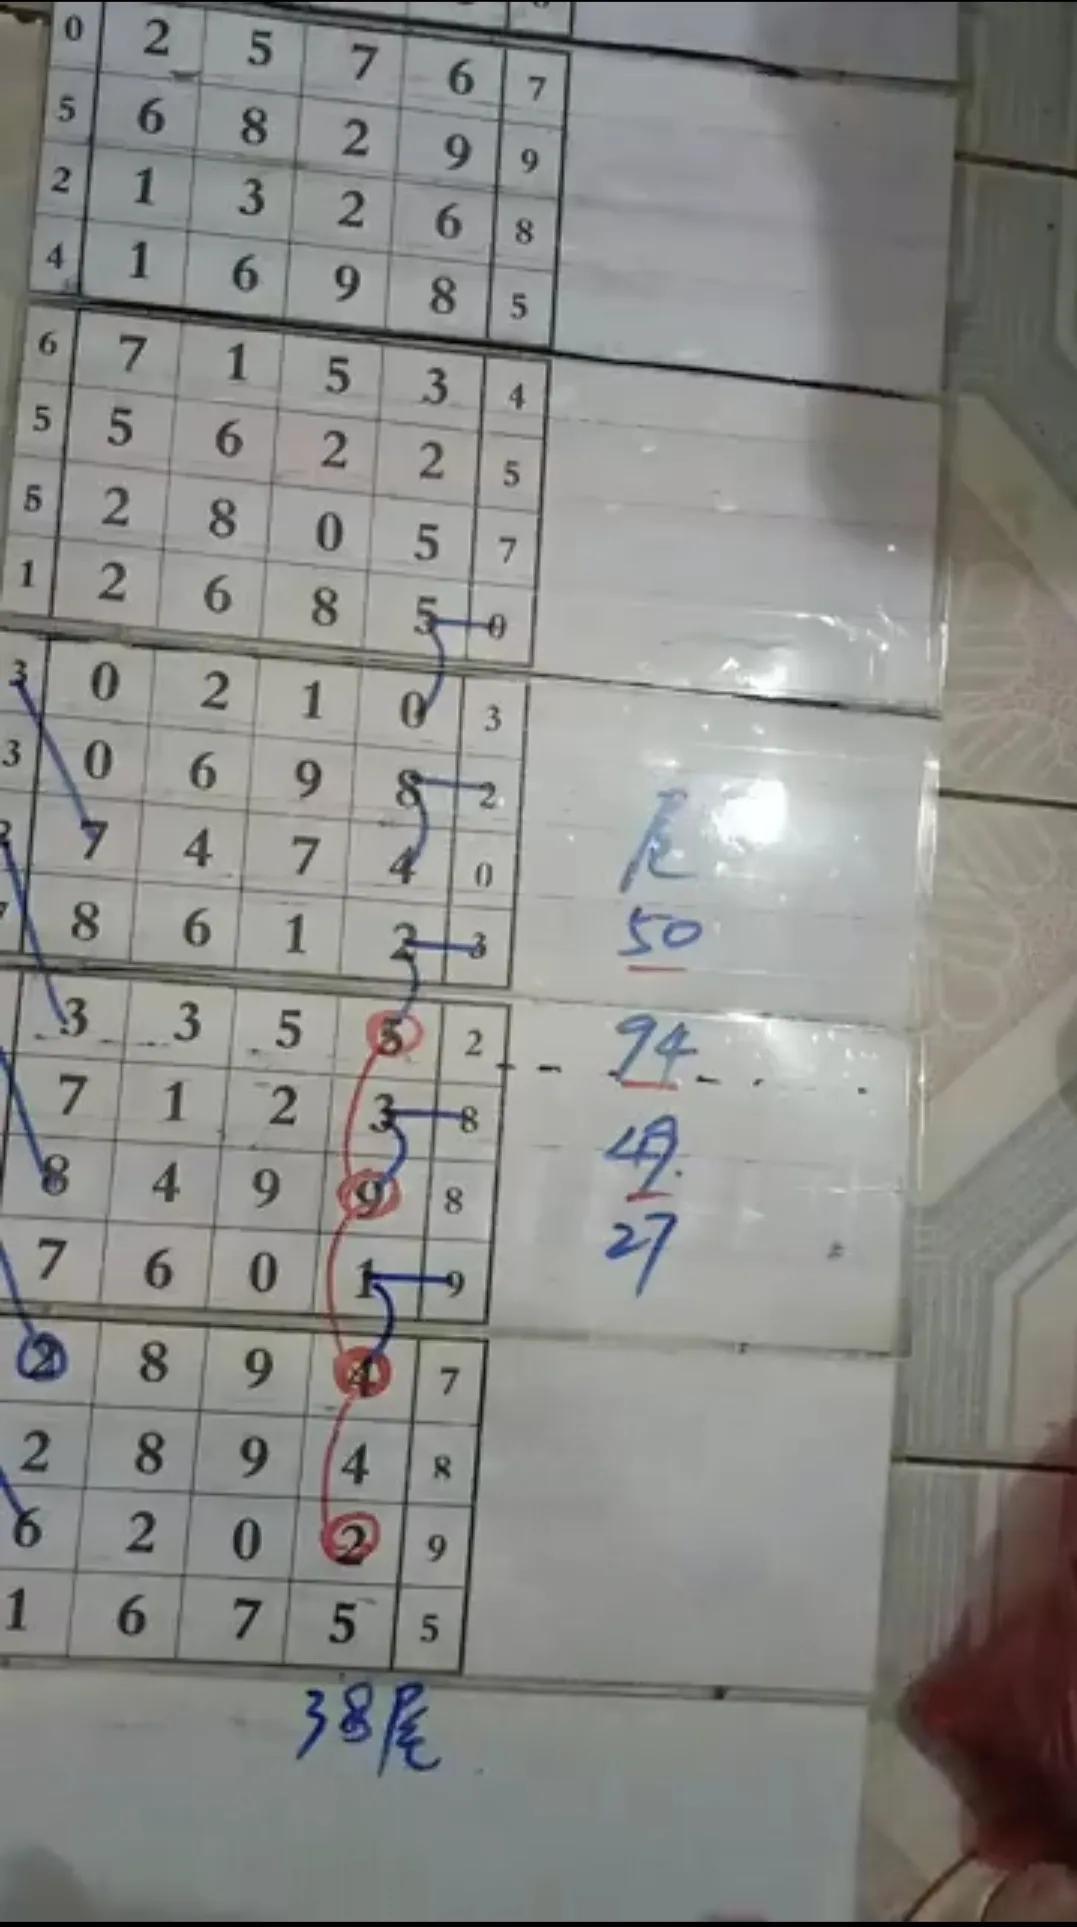 0 2 5 7 6 7
5 6 8 2 9 9
2 1 3 2 6 8
4 1 6 9 8 5
6 7 1 5 3 4
5 5 6 2 2 5
5 2 8 0 5 7
1 2 6 8 5 0
3 0 2 1 0 3
3 0 6 9 8 2
7 4 7 4 0
8 6 1 2 3
3 3 5 5 2
7 1 2 3 8
8 4 9 9 8
7 6 0 1 9
2 8 9 4 7
2 8 9 4 8
6 2 0 2 9
1 6 7 5 5
尾
50
94
49
27
38尾